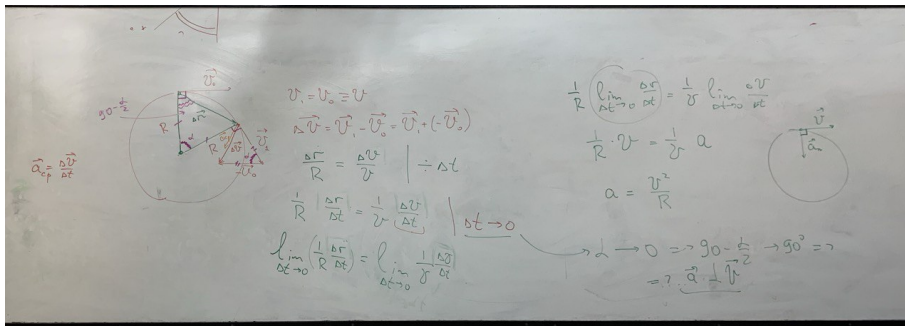 90-α/2
v⃗₀
Δr⃗
R
α
R
Δv⃗
v⃗₁
α
-v⃗₀
a⃗ср = Δv⃗/Δt
v₁ = v₀ ≡ v
Δv⃗ = v⃗₁ - v⃗₀ = v⃗₁ + (-v⃗₀)
Δr/R = Δv/v | ÷ Δt
1/R |Δr/Δt| = 1/v |Δv/Δt| | Δt → 0
lim Δt→0 (1/R Δr/Δt) = lim Δt→0 1/v Δv/Δt
1/R lim Δt→0 Δr/Δt = 1/v lim Δt→0 Δv/Δt
1/R · v = 1/v a
a = v²/R
α → 0 => 90 - α/2 → 90° =>
=> a⃗ ⊥ v⃗
v⃗